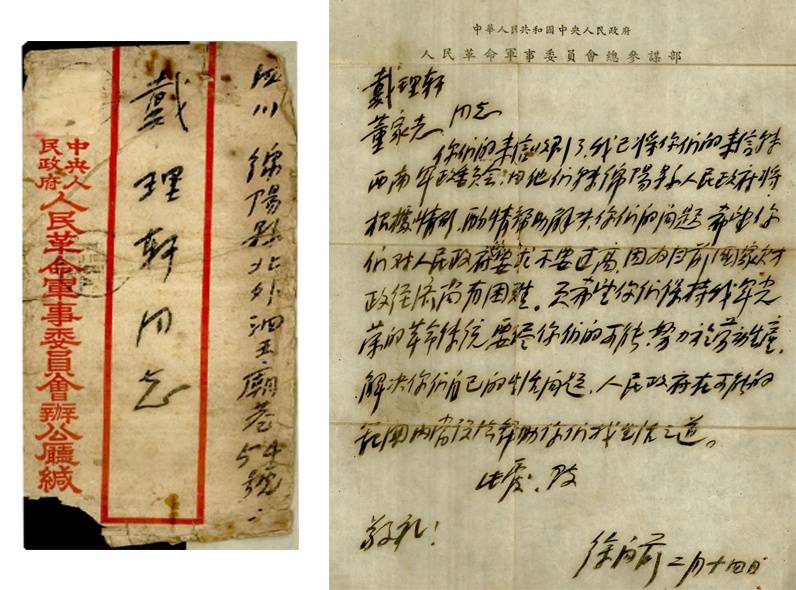 四川 綿陽縣北外泗王廟巷54號
戴理軒同志
中央人
民政府
人民革命軍事委員會辦公廳緘
中華人民共和國中央人民政府
人民革命軍事委員會總參謀部
戴理軒
董家志 同志
你们的来信收到了，我已将你们的来信转
西南军政委员会，由他们转绵阳县人民政府将
根據情形，酌情帮助解决你们的问题，希望你
们对人民政府要求不要过高，因为目前国家财
政经济尚有困难。又希望你们保持我军光
荣的革命传统，要尽你们的可能，努力於劳动生產，
解决你们自己的生活问题，人民政府在可能的
范围内当设法帮助你们找生活之道。
此覆，致
敬礼！
徐向前 二月十四日